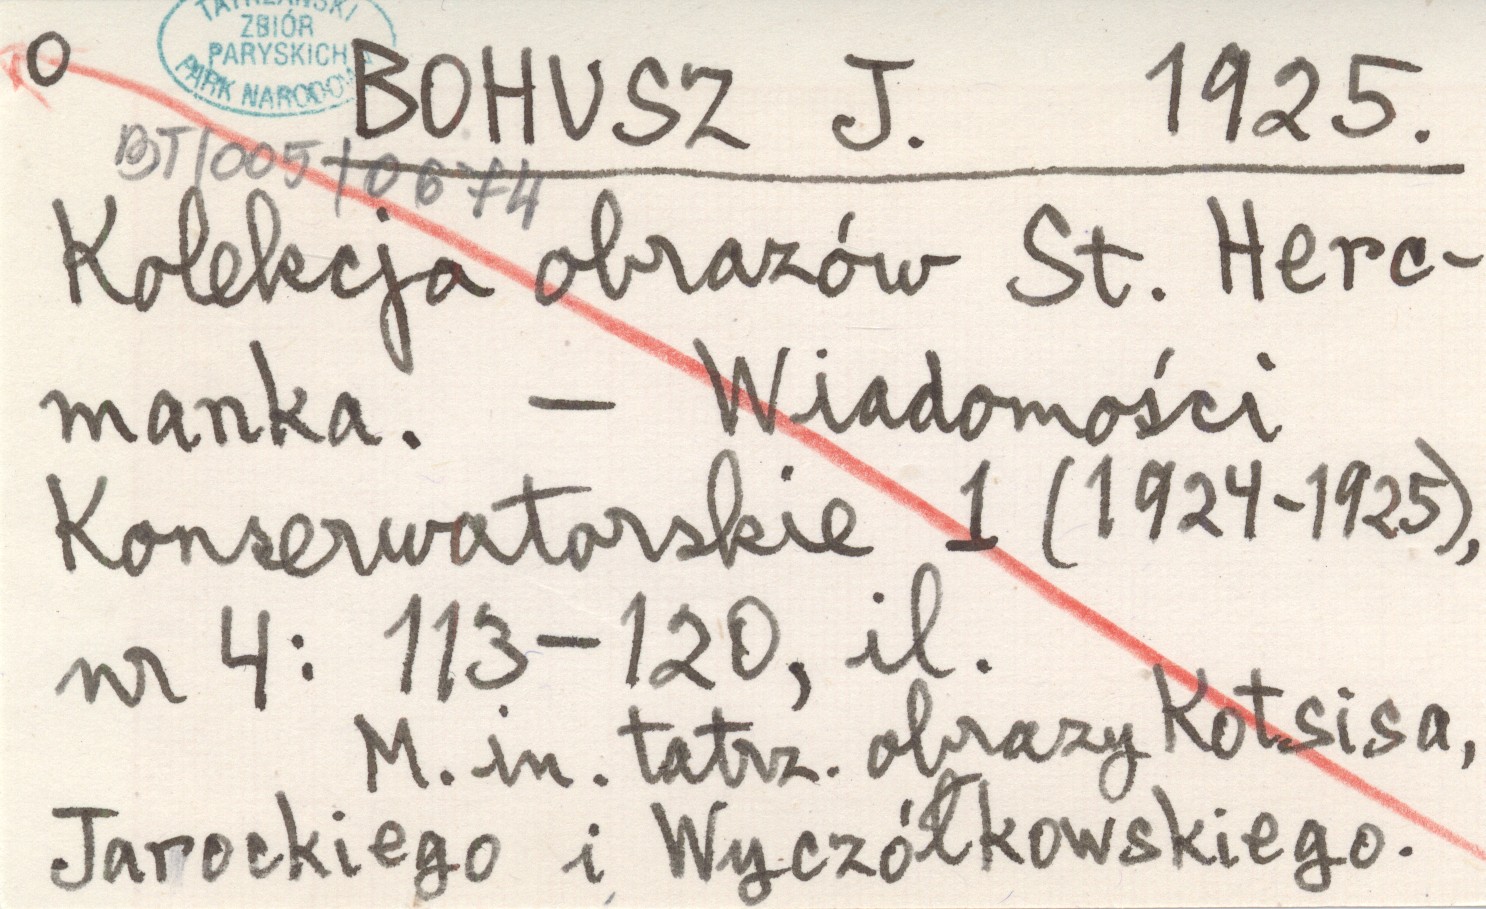 TATRZAŃSKI
ZBIÓR
PARYSKICH
PARK NARODOWY
O BOHUSZ J. 1925.
BT/005/0674
Kolekcja obrazów St. Herc-
manka. — Wiadomości
Konserwatorskie 1 (1924-1925),
nr 4: 113-120, il.
M. in. tatrz. obrazy Kotsisa,
Jarockiego i Wyczółkowskiego.